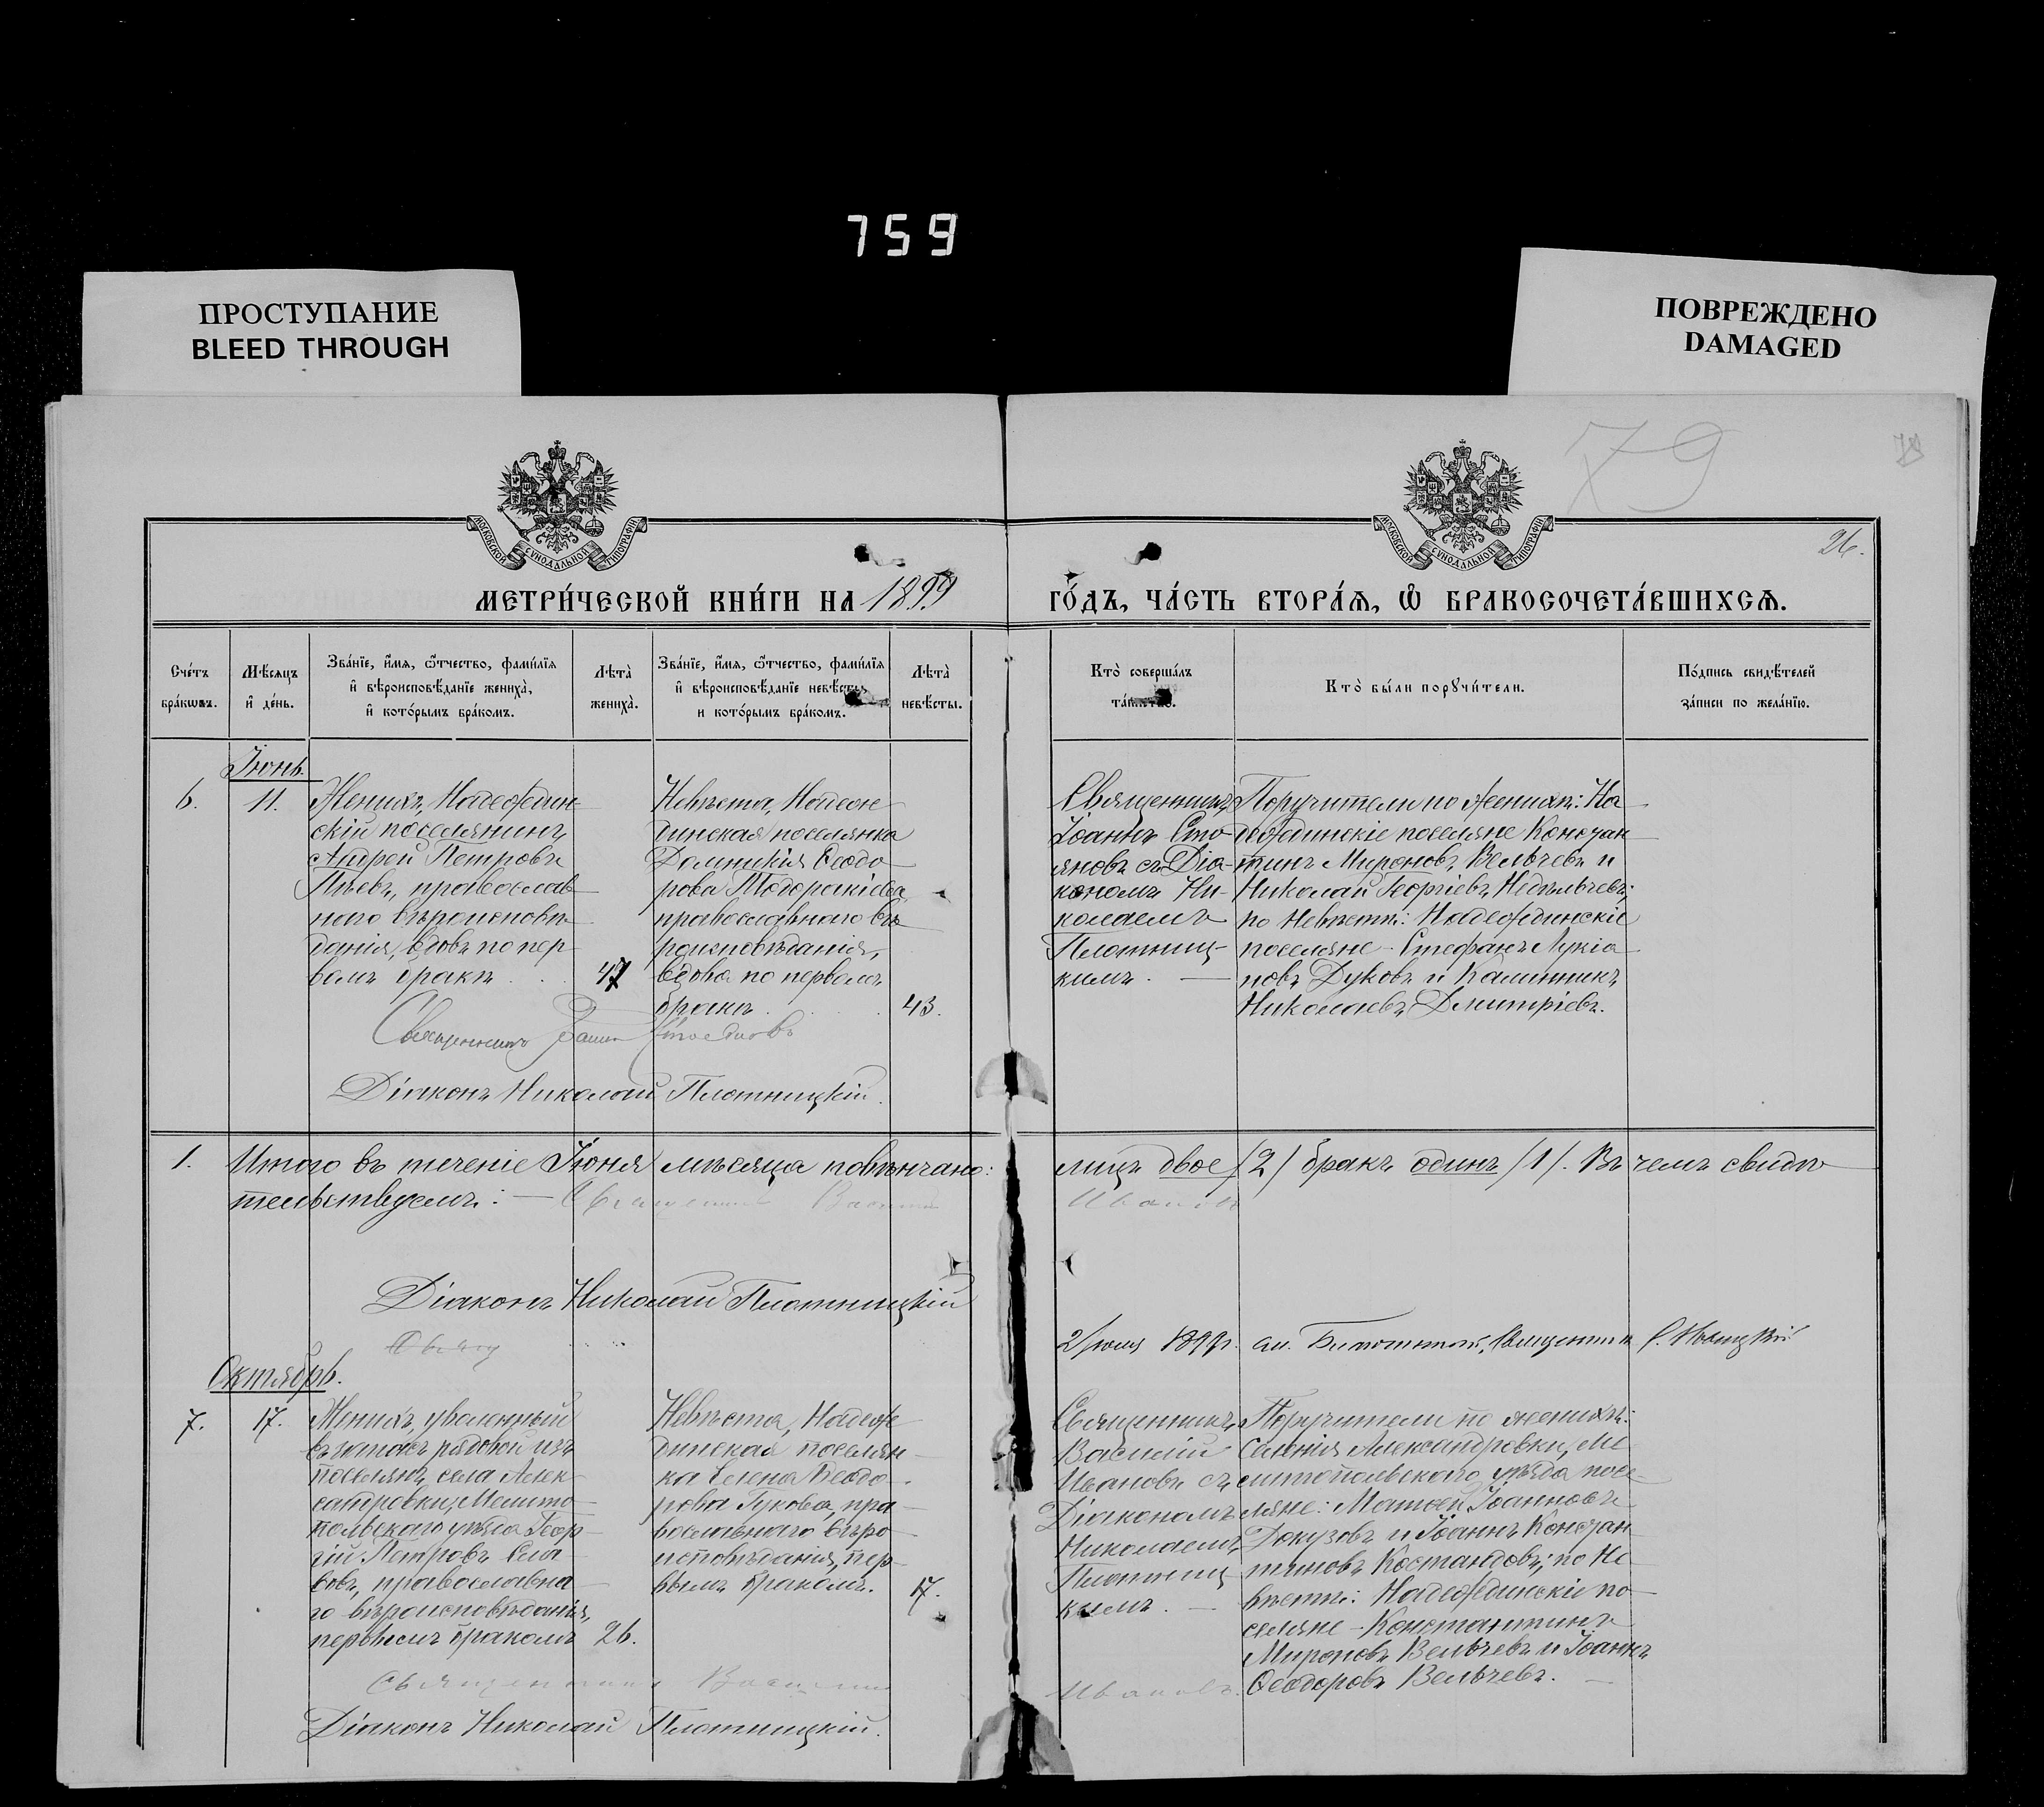 759
ПРОСТУПАНИЕ
BLEED THROUGH
ПОВРЕЖДЕНО
DAMAGED
79
26.
МОСКОВСКОЙ СѴНОДАЛЬНОЙ ТИПОГРАФІИ
МОСКОВСКОЙ СѴНОДАЛЬНОЙ ТИПОГРАФІИ
МЕТРИ́ЧЕСКОЙ КНИ́ГИ НА 1899
ГО́ДЪ, ЧА́СТЬ ВТОРА́Я, Ѿ БРАКОСОЧЕТА́ВШИХСѦ.
Сче́тъ
бра́кωвъ.
Мѣ́сяцъ
и҆ де́нь.
Зва́нїе, и҆́мя, ѻ҆́тчество, фами́лїя
и҆ вѣроисповѣ́данїе жениха̀,
и҆ кото́рымъ бра́комъ.
Лѣ́та̀
жениха̀.
Зва́нїе, и҆́мя, ѻ҆́тчество, фами́лїя
и҆ вѣроисповѣ́данїе невѣ́сты,
и кото́рымъ бра́комъ.
Лѣ́та̀
невѣ́сты.
Кто̀ соверша́лъ
Кто̀ бы́ли порꙋчи́тели.
По́дпись свидѣ́телей
за́писи по жела́нїю.
Іюнь.
6.
11.
Женихъ, Надеждин-
скій поселянинъ
Андрей Петровъ
православ-
наго вѣроисповѣ-
данія, вдовъ по пер-
вомъ бракѣ
47
Невѣста, Надеж-
динская поселянка
Домникія Ѳеодо-
рова Тодоракіева
православнаго вѣ-
роисповѣданія,
вдова по первомъ
бракѣ
43.
Священникъ
Іоаннъ Сто-
яновъ съ Діа-
кономъ Ни-
колаемъ
Плотниц-
кимъ.
Поручители по женихѣ: На-
деждинскіе поселяне Констан-
тинъ Мироновъ Вельчевъ и
Николай Георгіевъ Недѣльчевъ;
по невѣстѣ: Надеждинскіе
поселяне – Стефанъ Лукіа-
новъ Дуковъ и Каллиникъ
Николаевъ Дмитріевъ.
Священникъ Іоаннъ Стояновъ
Діаконъ Николай Плотницкій.
1.
Итого въ теченіе Іюня мѣсяца повѣнчано:
лицъ двое /2/ бракъ одинъ /1/. Въ чемъ свидѣ-
тельствуемъ: – Священникъ Василій
Ивановъ
Діаконъ Николай Плотницкій
2 іюля 1899г.
Октябрь.
7.
17.
Женихъ, уволенный
въ запасъ рядовой изъ
поселянъ села Алек-
сандровки, Мелито-
польскаго уѣзда Геор-
гій Петровъ Сла-
вовъ, православна-
го вѣроисповѣданія,
первымъ бракомъ
26.
Невѣста, Надеж-
динская поселян-
ка Елена Ѳеодо-
рова Гукова, пра-
вославнаго вѣро-
исповѣданія, пер-
вымъ бракомъ.
17.
Священникъ
Василій
Ивановъ съ
Діакономъ
Николаемъ
Плотниц-
кимъ. –
Поручители по женихѣ:
селенія Александровки, Ме-
литопольскаго уѣзда посе-
ляне: Матѳей Іоанновъ
Докузовъ и Іоаннъ Констан-
тиновъ Костандовъ; по Не-
вѣстѣ: Надеждинскіе по-
селяне – Константинъ
Мироновъ Вельчевъ и Іоаннъ
Ѳеодоровъ Вельчевъ. –
Священникъ Василій
Ивановъ.
Діаконъ Николай Плотницкій.